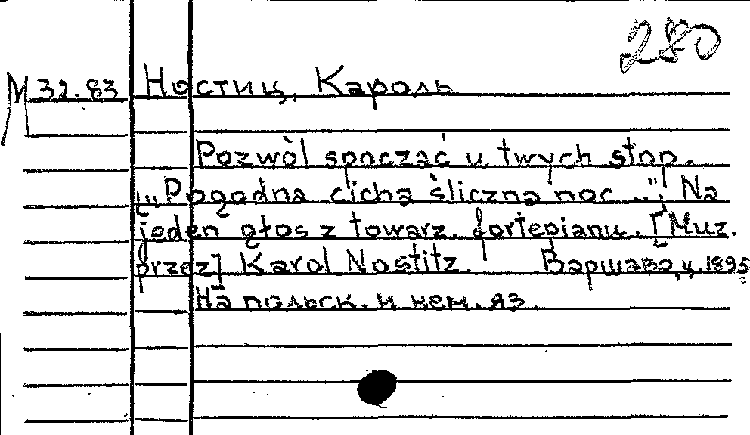 280
М 32.83 Ностиц, Кароль
Pozwól spocząć u twych stop.
[„Pogodna cicha śliczna noc..."; Na
jeden głos z towarz. fortepianu. [Muz.
przez] Karol Nostitz. Варшава, ц. 1895
На польск. и нем. яз.